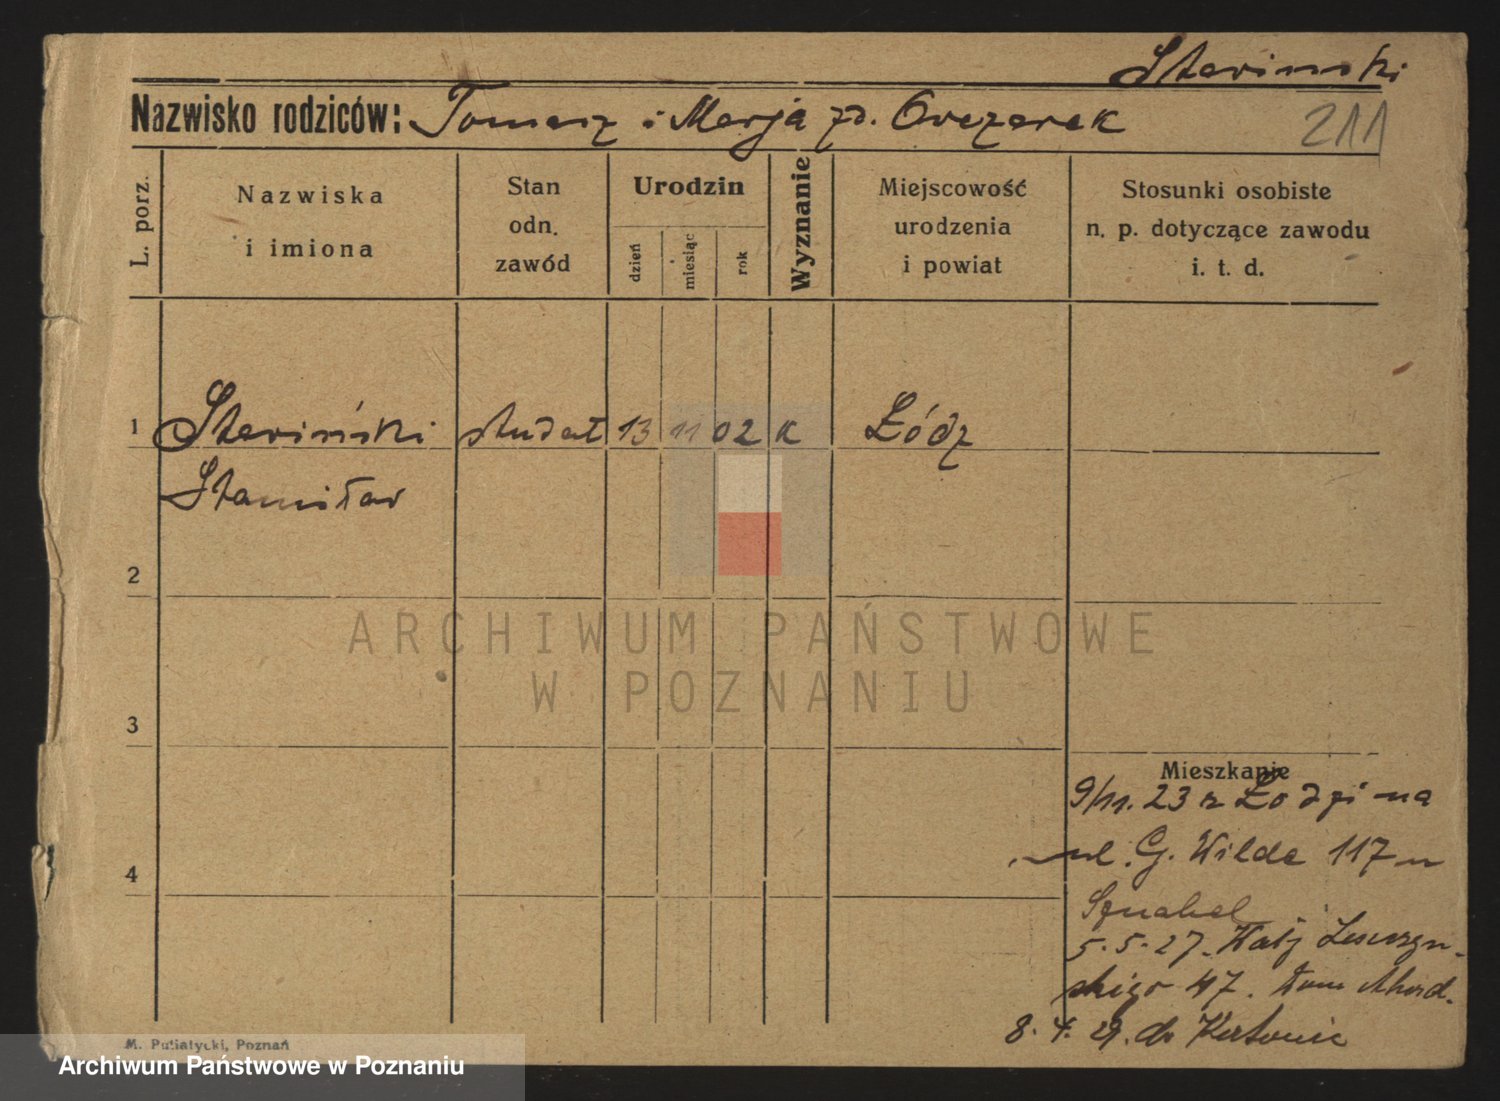 Stariński
Nazwisko rodziców: Tomasz i Marja zd. Owczarek
211
L. porz.
Nazwiska
i imiona
Stan
odn.
zawód
Urodzin
dzień
miesiąc
rok
Wyznanie
Miejscowość
urodzenia
i powiat
Stosunki osobiste
n. p. dotyczące zawodu
i. t. d.
1 Stariński studat 13 11 02 k Łódz
Stanisław
2
3
4
Mieszkanie
9/11. 23 z Łodzi na
ul. G. Wilda 117 u
Sznabel
5.5.27. Włdz
47.
8. 4. 29. do Katowic
M. Putiatycki, Poznań
ARCHIWUM PAŃSTWOWE
W POZNANIU
Archiwum Państwowe w Poznaniu